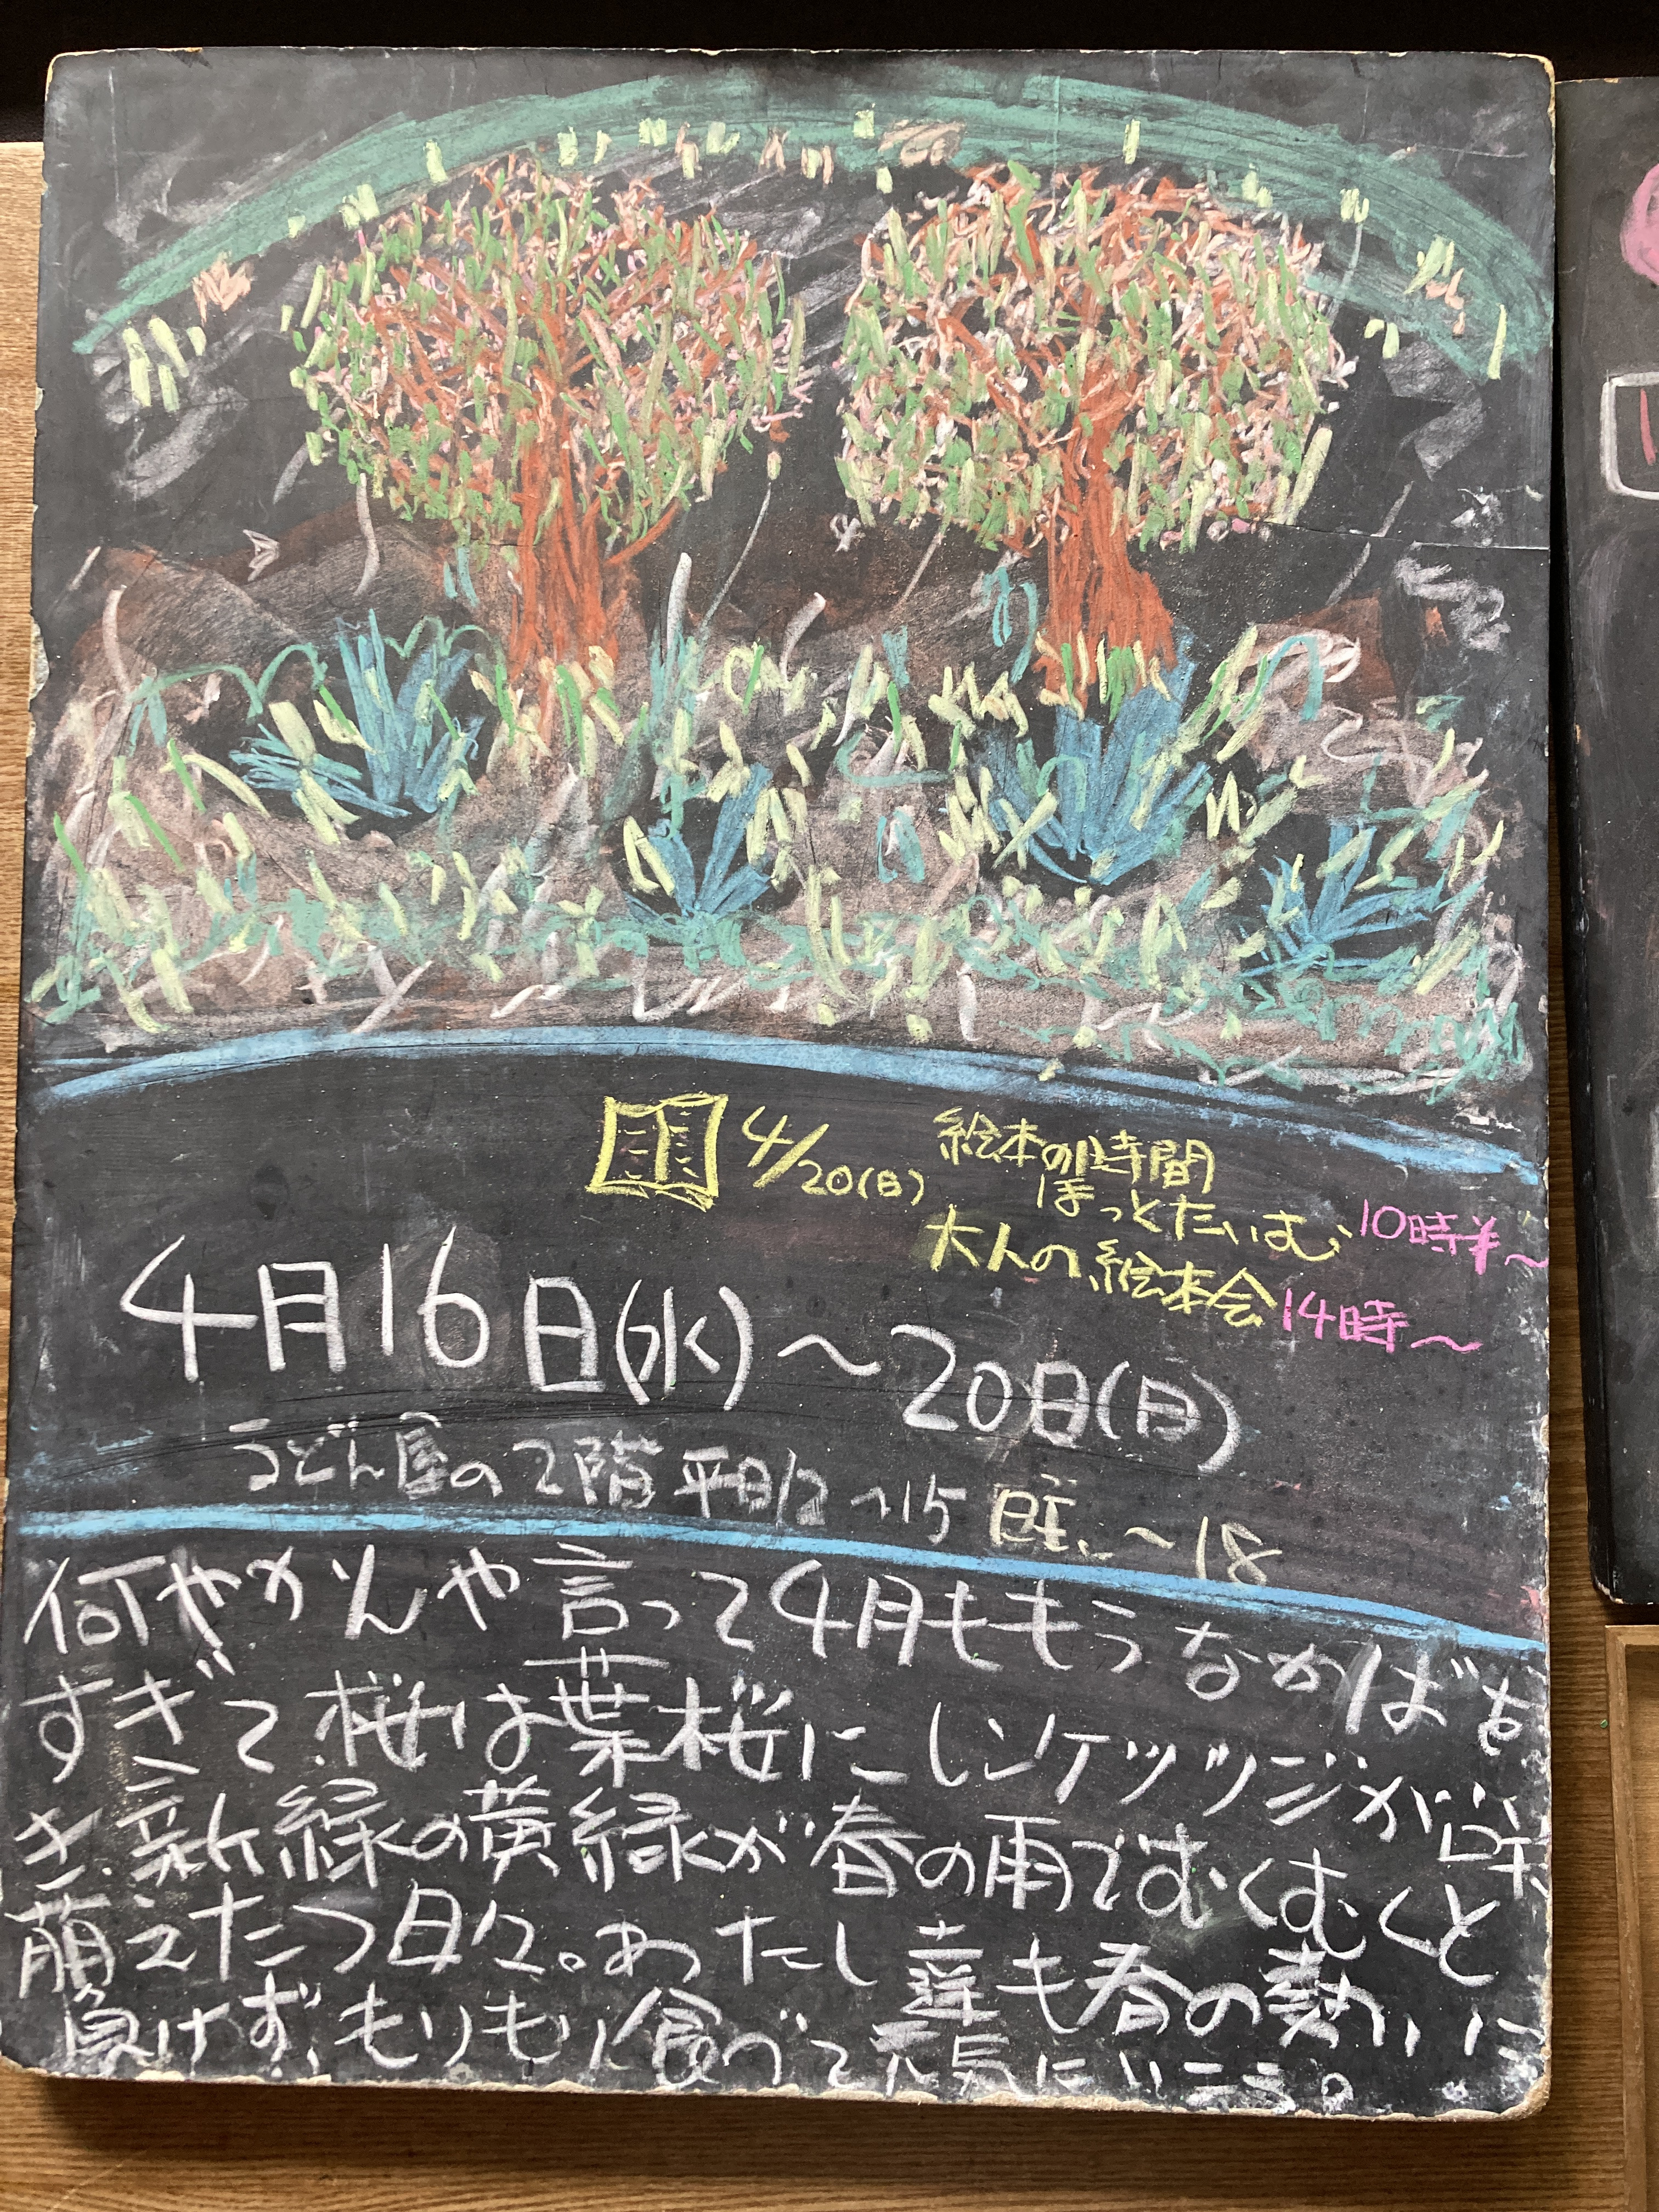 4/20(日) 絵本の時間
ほっとたいむ 10時半〜
大人の絵本会 14時〜
4月16日(水)〜20日(日)
うどん屋の2階 平日12〜15 〜18
何やかんや言って4月ももうなかばを
すぎて桜は葉桜に レンゲツツジが咲
き、新緑の黄緑が春の雨でむくむくと
萌えたつ日々。あたし達も春の勢いに
負けず、もりもり食べて元気にいこう。